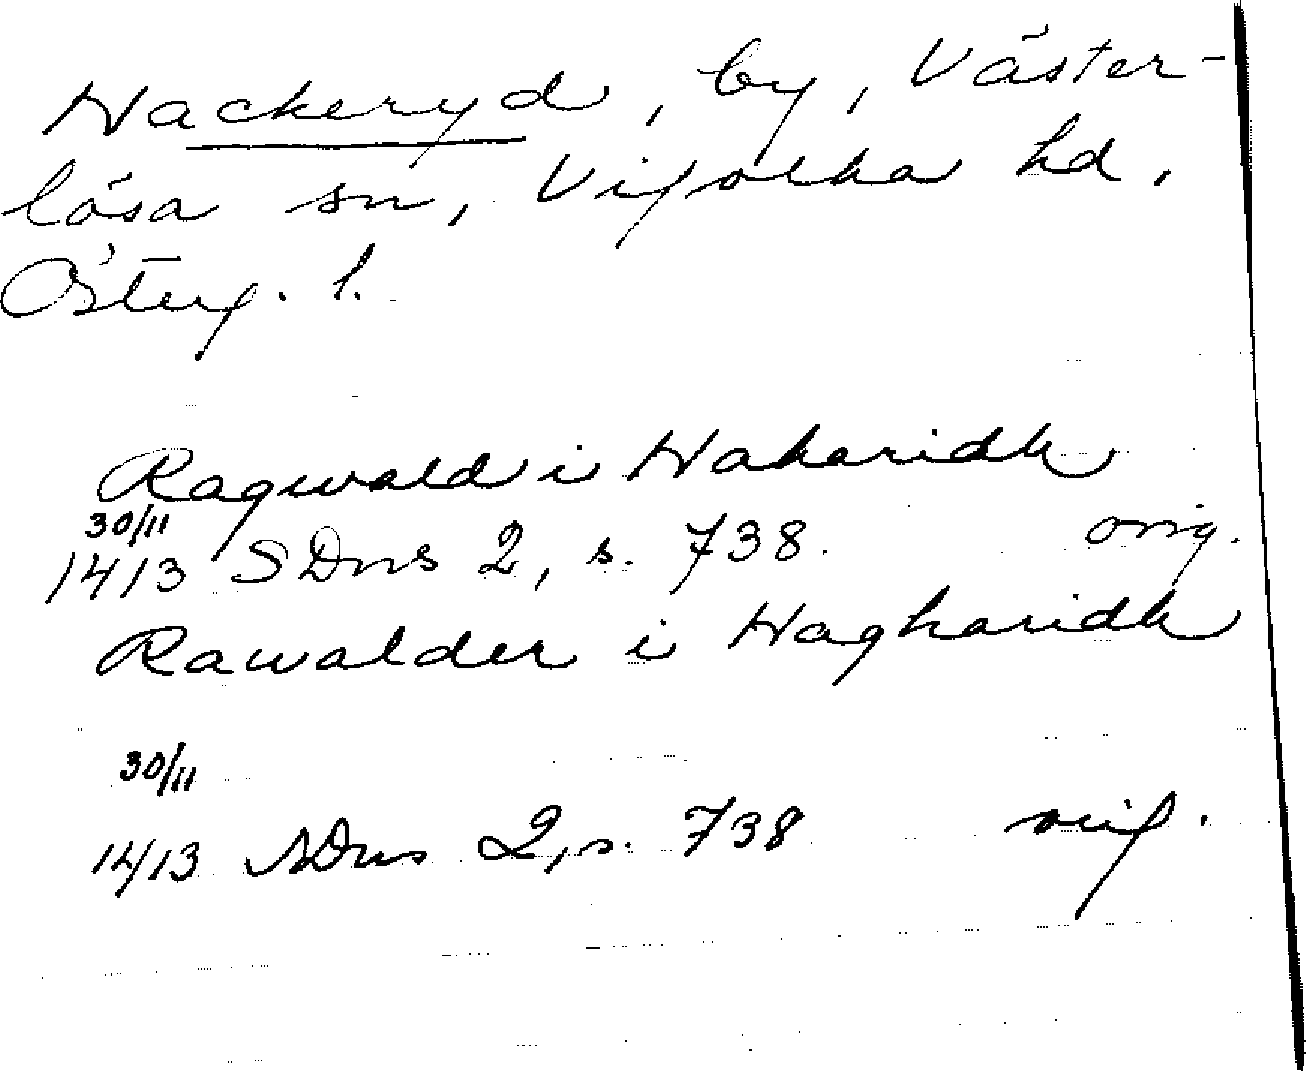 Hackeryd, by, Väster-
lösa sn, Vifolka hd,
Österg. l.
Ragwald i Hakaridh
30/11
1413 SDns 2, s. 738. orig.
Rawalder i Hagharidh
30/11
1413 SDns 2, s. 738 orig.